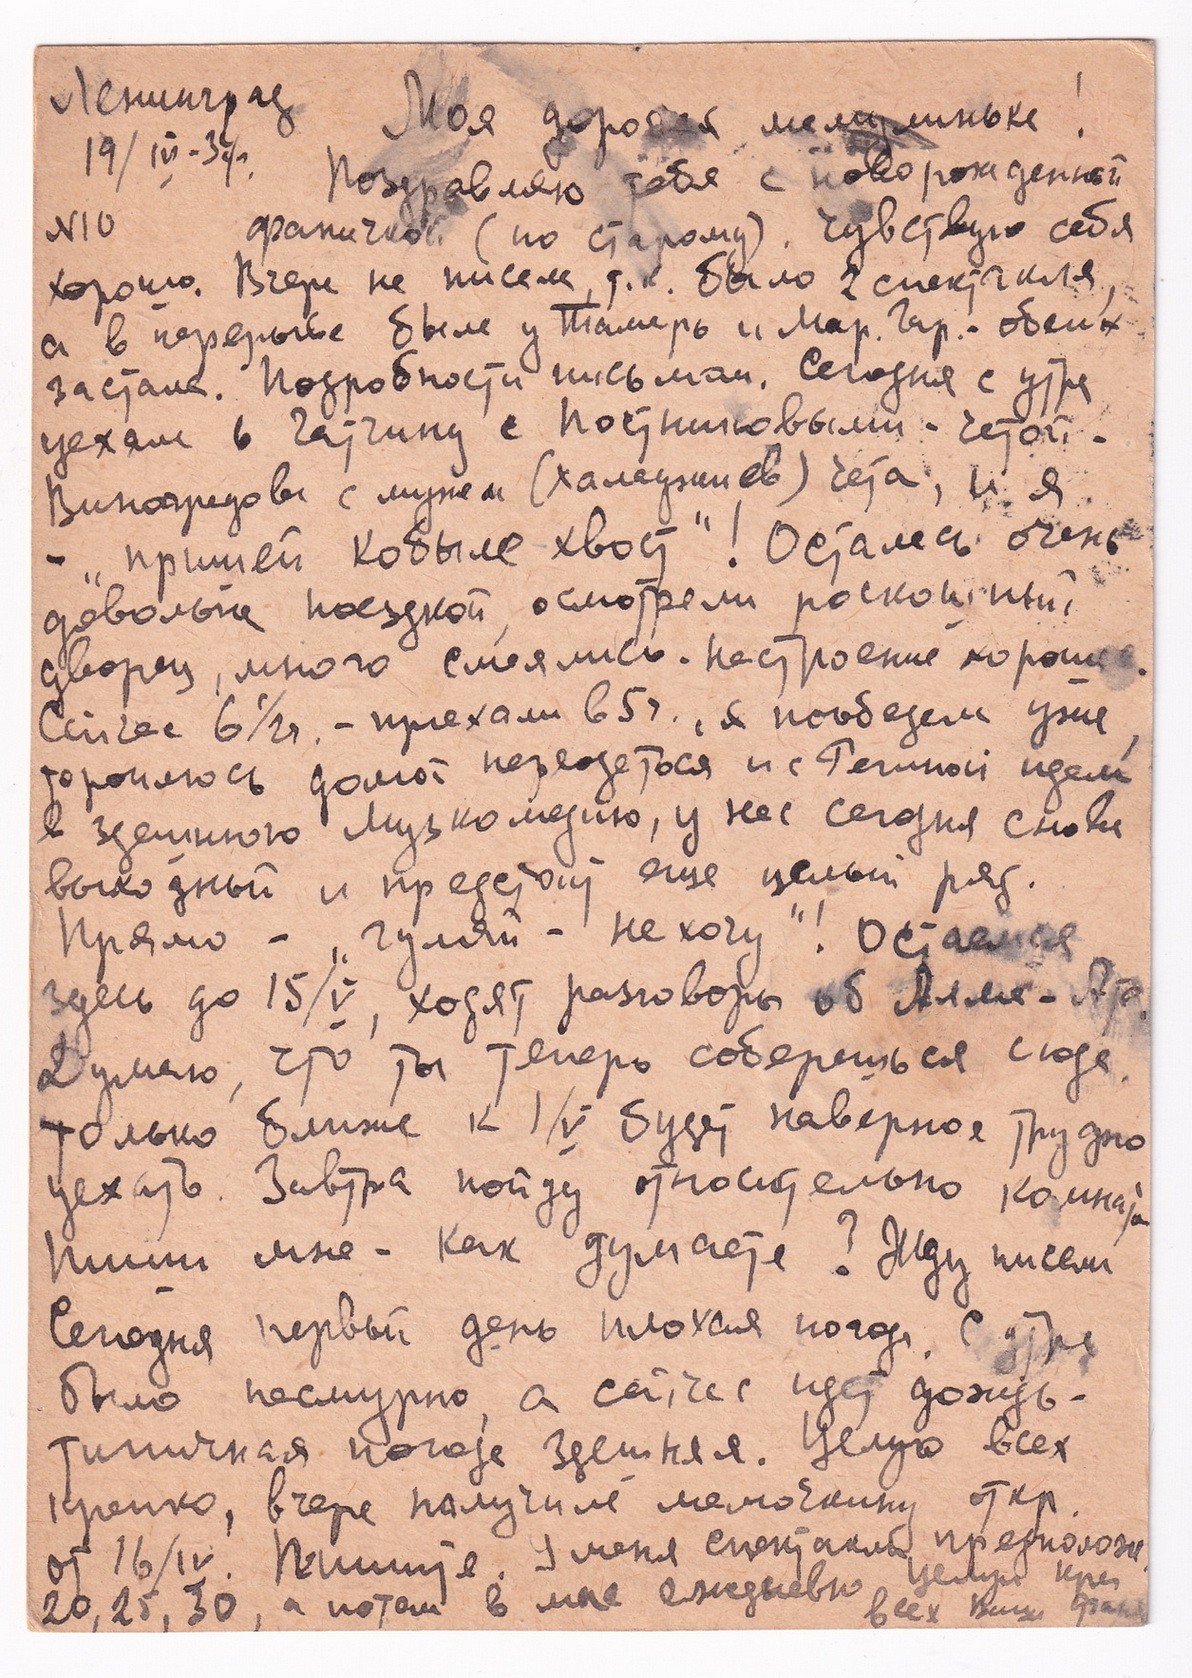 Ленинград
Моя дорогая мамулинька!
19/IV-34г.
Поздравляю тебя с новорожденной
N10 фаничкой (по старому). Чувствую себя
хорошо. Вчера не писала, т.к. было 2 спектакля,
а в перерыве была у Тамары и Мар. Гар. - обеих
застала. Подробности письмом. Сегодня с утра
уехали в Гатчину с Постниковыми - четой -
Виноградова с мужем (Халеджиев) чета, и я
- „пришей кобыле хвост"! Осталась очень
довольна поездкой, осмотрели роскошный
дворец, много смеялись. Настроение хорошее.
Сейчас 6 1/2 ч. - приехали в 5 ч., я пообедала уже,
тороплюсь домой переодеться и с Геничкой идем
в здешнюю Музкомедию, у нас сегодня снова
выходный и предстоит еще целый ряд.
Прямо - „гуляй - не хочу"! Остаемся
здесь до 15/V, ходят разговоры об Алма-Ата.
Думаю, что ты теперь соберешься сюда.
только ближе к 1/V будет наверное трудно
уехать. Завтра пойду относительно комнаты
Пиши мне - как думаете? Жду писем
Сегодня первый день плохая погода. С утра
было пасмурно, а сейчас идет дождь -
типичная погода здешняя. Целую всех
крепко, вчера получила мамочкину откр.
от 16/IV. Пишите. У меня спектакли предполож.
20, 25, 30, а потом в мае ежедневно Целую креп
всех Ваша